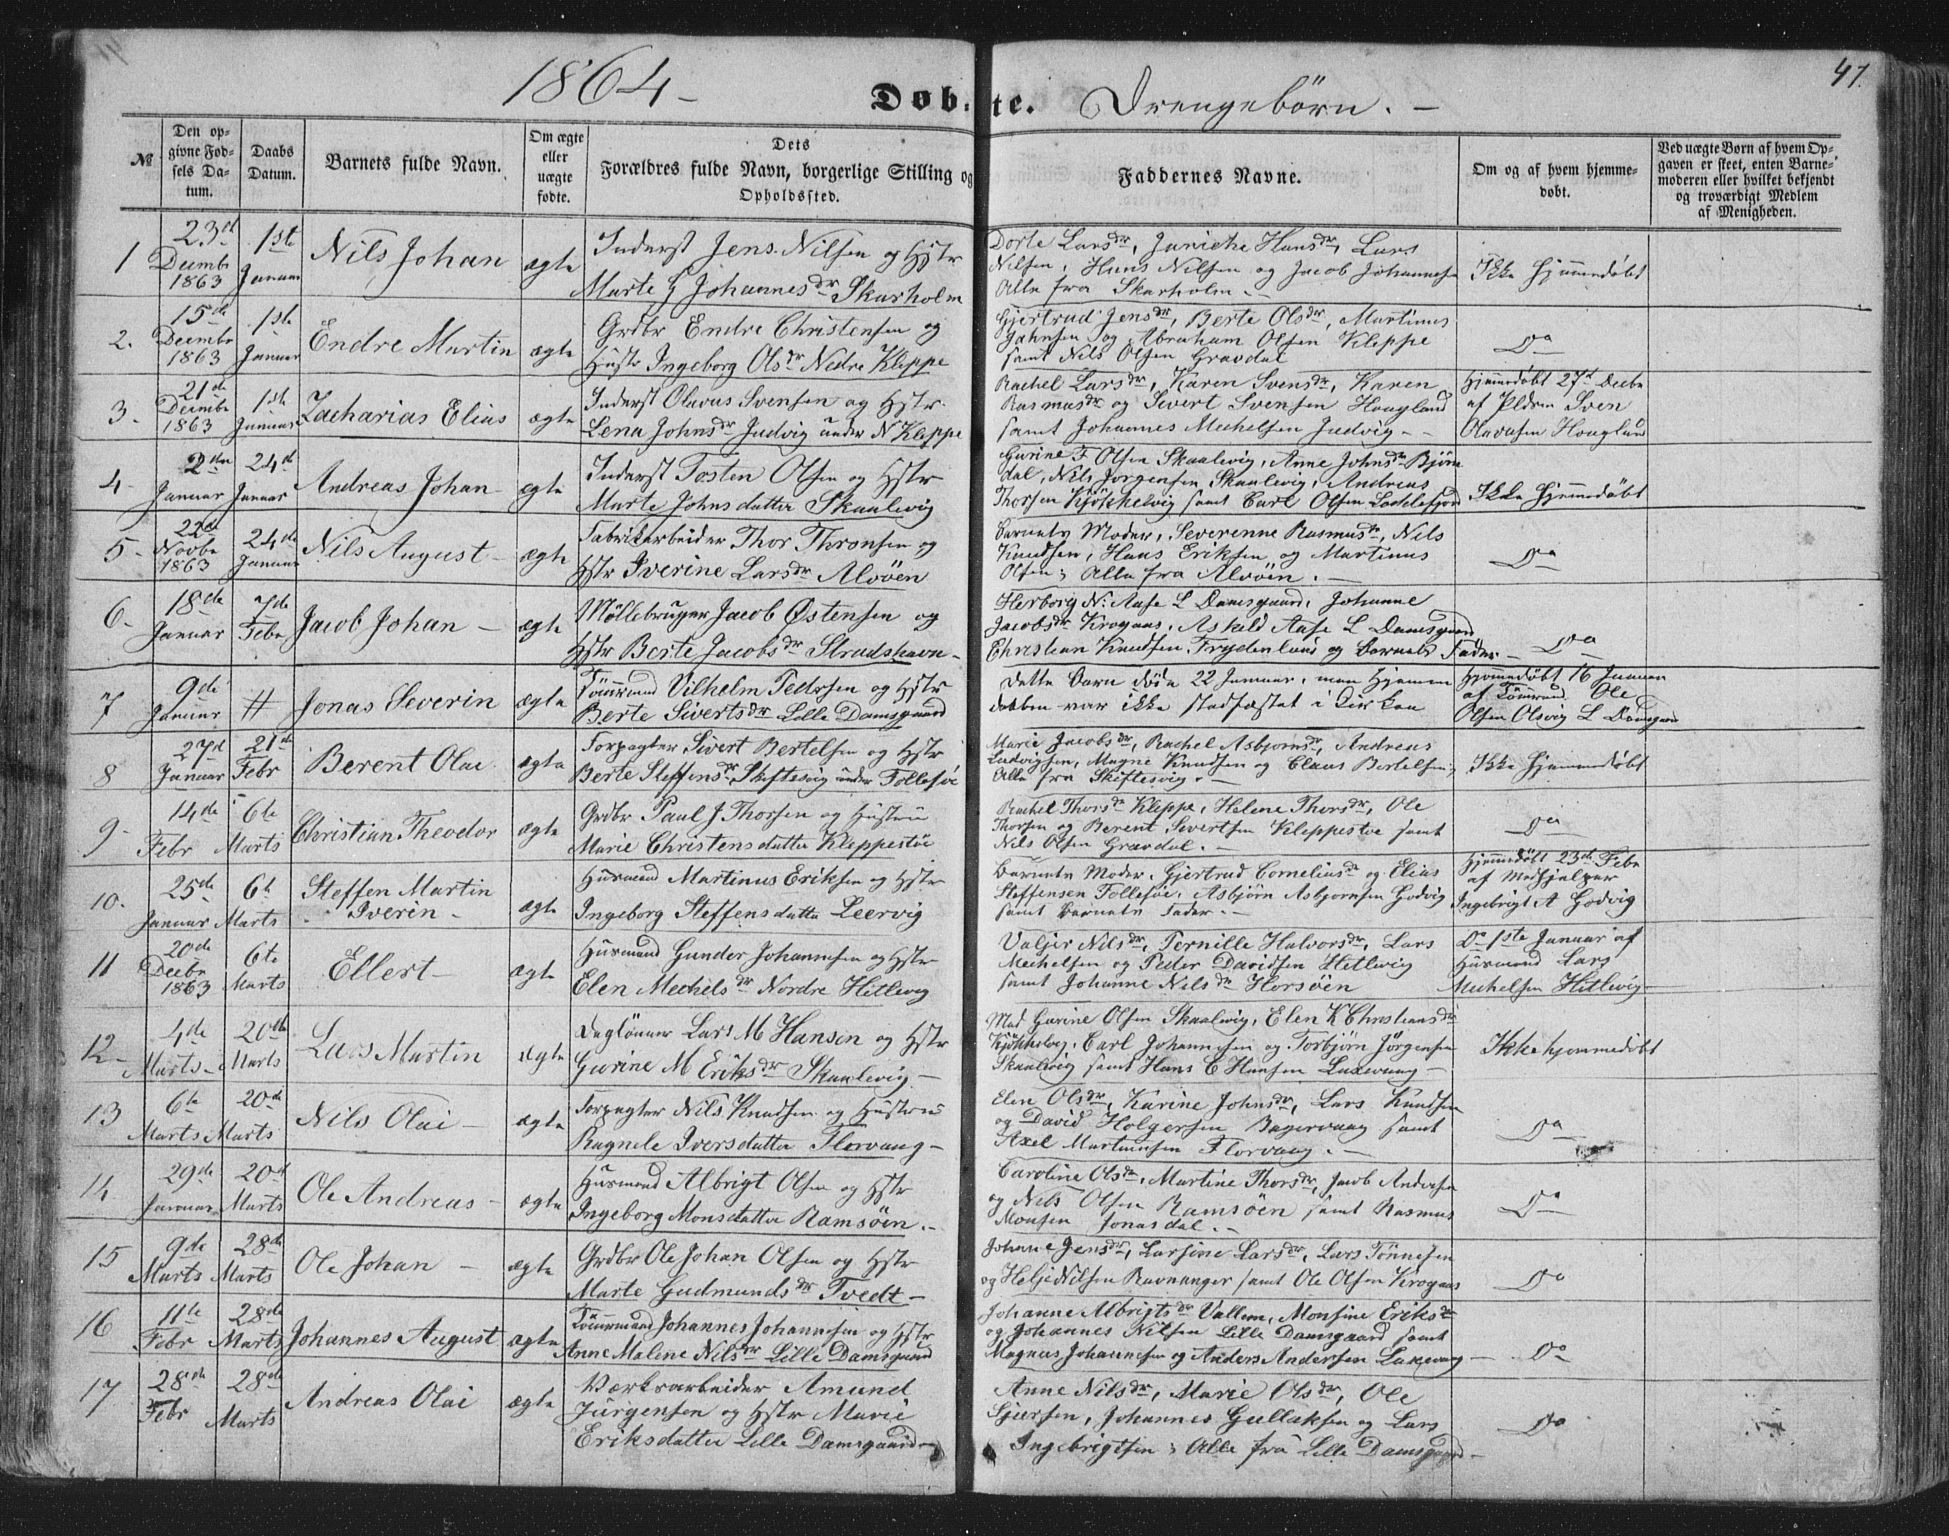 1864 –
47.
Döbte. Drengebörn. –
№
Den opgivne Fødsels Datum.
Daabs Datum.
Barnets fulde Navn.
Om ægte eller uægte fødte.
Dets Forældres fulde Navn, borgerlige Stilling og Opholdssted.
Faddernes Navne.
Om og af hvem hjemmedøbt.
Ved uægte Børn af hvem Opgaven er skeet, enten Barnemoderen eller hvilket bekjendt og troværdigt Medlem af Menigheden.
1 23d Decmbr 1863 1ste Januar Nils Johan ægte
Inderst Jens Nilsen og Hstr
Marte G Johannesdr Skarholm
Dorte Larsdr, Janiche Hansdr, Lars
Nilsen, Hans Nilsen og Jacob Johannesen
Alle fra Skarholm. –
Ikke hjemmedøbt
2. 15de Decmbr 1863 1ste Januar Endre Martin ægte
Grdbr Endre Christensen og
Hustr Ingeborg Olsdr Nedre Kleppe
Gjertrud Jensdr, Berte Olsdr, Martinus
Jahnsen og Abraham Olsen Kleppe
samt Nils Olsen Gravdal
Do
3. 21de Decmbr 1863 1ste Januar Zacharias Elias ægte
Inderst Olavus Svensen og Hstr.
Lena Johnsdr Judvig under N Kleppe
Rachel Larsdr, Karen Svensdr, Karen
Rasmusdr og Sivert Svensen Hougland
samt Johannes Mechelsen Judvig –
Hjemmedøbt 27d Decbr
af Sven
Olavusen Houglund
4 2den Januar 24d Januar Andreas Johan ægte
Inderst Tosten Olsen og Hstr
Marte Johnsdatter Skaalevig
Gurine F Olsen Skaalevig, Anne Johnsdr Bjørn
dal, Nils Jørgensen Skaalevig, Andreas
Thorsen Kjøkkelvig samt Carl Olsen
Ikke hjemmedøbt
5. 22d Novbr 1863 24de Januar Nils August – ægte
Fabrikarbeider Thor Thronsen og
Hstr Iverine Larsdr Alvøen
Barnets Moder, Severenne Rasmusdr, Nils
Knudsen, Hans Eriksen og Martinus
Olsen; Alle fra Alvøen. –
Do
6. 18de Januar 7de Febr Jacob Johan – ægte
Möllebruger Jacob Østensen og
Hstr Berte Jacobsdr Strudshavn –
Herborg N. Aase L Damsgaard, Johanne
Jacobsdr Krogaas, Askeld Aase L Damsgaard
Christian Knudsen Frydenlund og Barnets Fader –
Do
7 9de Januar # Jonas Severin ægte
Tömrmand Vilhelm Pedersen og Hstr
Berte Sivertsdr Lille Damsgaard
Dette Barn døde 22 Januar, men Hjemme
daaben var ikke stadfæstet i Kirken
Hjemmedøbt 16 Januar
af Tömrmd Ole
Olsen Olsvig L Damsgaard
8 27d Januar 21de Febr Berent Olai ægte
Forpagter Sivert Bertelsen og Hstr
Berte Steffensdr Skiftesvig under Follesöe
Marie Jacobsdr, Rachel Asbjornsdr, Andreas
Ludvigsen, Magne Knudsen og Claus Bertelsen;
Alle fra Skiftesvig. –
Ikke hjemmedøbt
9 14de Febr 6te Marts Christian Theodor ægte
Grdbr Paul J Thorsen og Hustru
Marie Christensdatter Kleppestöe
Rachel Thorsdr Kleppe, Helene Thorsdr, Ole
Thorsen og Berent Severtsen Kleppestoe samt
Nils Olsen Gravdal. –
Do
10. 25de Januar 6te Marts Steffen Martin Iverin – ægte
Husmand Martinus Eriksen og Hstr
Ingeborg Steffensdatter Leervig
Barnets Moder, Gjertrud Corneliusdr og Elias
Steffensen Follesöe, Asbjörn Asbjornsen Godvig
samt Barnets Fader. –
Hjemmedøbt 23de Febr
af Medhjelper
Ingebrigt A Godvig
11 20de Decbr 1863 6te Marts Ellert – ægte
Husmand Gunder Johannesen og Hstr
Elen Mechelsdr Nordre Hitlevig
Valjer Nilsdr, Pernille Halvorsdr, Lars
Mechelsen og Peder Davidsen Hetlevig
samt Johanne Nilsdr Horsøen
Do 1ste Januar af
Husmand Lars
Mechelsen Hitlevig
12 – 4de Marts – 20de Marts Lars Martin ægte
Daglönner Lars M Hansen og Hstr
Gurine M Eriksdr Skaalevig –
Mad Gurine Olsen Skaalevig, Elen K Christiansdr
Kjökkelvig, Carl Johannesen og Torbjørn Jørgensen
Skaalevig samt Hans C Hansen Laxevaag –
Ikke hjemmedøbt
13 6te Marts 20de Marts Nils Olai – ægte
Forpagter Nils Knudsen og Hustru
Ragnele Iversdatter Florvaag –
Elen Olsdr, Karine Johnsdr, Lars Knudsen
og David Holgersen Bagervaag samt
Axel Martinusen Florvaag. –
Do
14 29de Januar 20d Marts Ole Andreas – ægte
Husmand Albrigt Olsen og Hstr
Ingeborg Monsdatter Ramsöen. –
Caroline Olsdr, Martine Thorsdr, Jacob Andersen
og Nils Olsen Ramsöen samt Rasmus
Monsen Jonasdal. –
Do
15 9de Marts 28de Marts Ole Johan – ægte
Grdbr Ole Johan Olsen og Hstr
Marte Gudmundsdr Tvedt –
Johanne Jensdr, Larsine Larsdr, Lars Tönnesen
og Helje Nilsen Ravnanger samt Ole Olsen Krogaas
Do
16 11te Febr 28de Marts Johannes August ægte
Tömrmand Johannes Johannesen og Hstr
Anne Malene Nilsdr Lille Damsgaard
Johanne Albrigtsdr Vallem, Monsine Eriksdr
og Johannes Nilsen Lille Damsgaard samt
Magnus Johannesen og Anders Andersen Laxevaag –
Do
17 28de Febr 28de Marts Andreas Olai ægte
Værksarbeider Amund
Jürgensen og Hstr Marie
Eriksdatter Lille Damsgaard –
Anne Nilsdr, Marie Olsdr, Ole
Sjursen, Johannes Gullaksen og Lars
Ingebrigtsen; Alle fra Lille Damsgaard –
Do